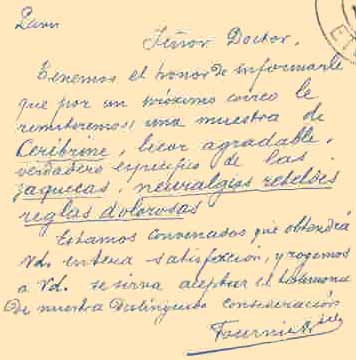 Señor Doctor.
Tenemos el honor de informarle
que por un próximo correo le
remitoremos una muestra de
Cerebrine, licor agradable,
verdadero especifico de las
jaquecas, neuralgias rebeldes
reglas dolorosas
Estamos convencidos que obtendrá
Vd. entera satisfacción, y rogamos
a Vd. se sirva aceptar el testimonio
de nuestra distinguida consideración
Fournier